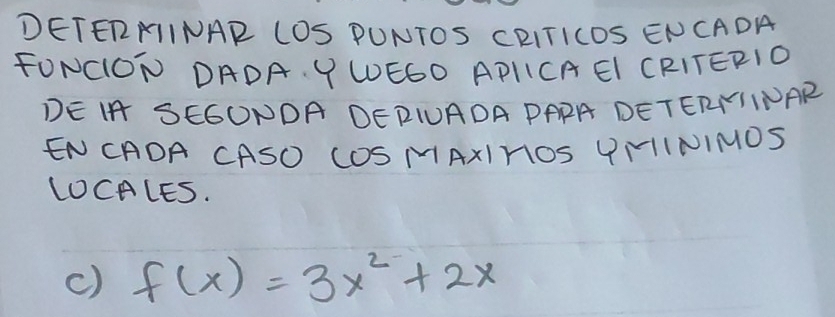 DETERMINAR LOS PUNTOS CRITICOS EN CADA
FUNCIÓN DADA. Y LUEGO APLICA El CRITERIO
DE lA SEGUNDA DERIVADA PARA DETERMINAR
EN CADA CASO LOS MAXIMOS Y MINIMOS
LOCALES.
c) f(x) = 3x² + 2x